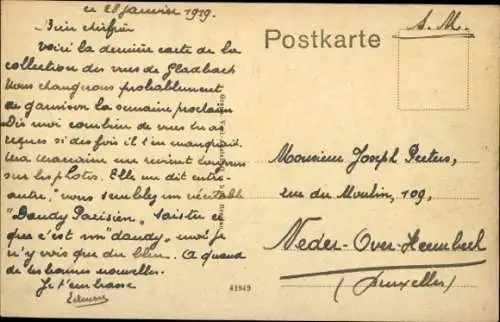 ce 28 Janvier 1919.
Bien cher
Voici la dernière carte de la
collection des vues de Gladbach
Nous changeons probablement
de garnison la semaine prochaine
Dis moi combien de vues tu as
reçues si des fois il s'en manquait.
Ma marraine me revient toujours
sur les photos. Elle me dit entre-
autre, "vous semblez un véritable
"Dandy Parisien", sais-tu ce
que c'est un "dandy", moi je
n'y vois que du bleu. A quand
de tes bonnes nouvelles.
Je t'embrasse
Postkarte
S. M.
Monsieur Joseph Peeters,
rue du Moulin, 109,
Neder-Over-Heembeek
(Bruxelles)
41949